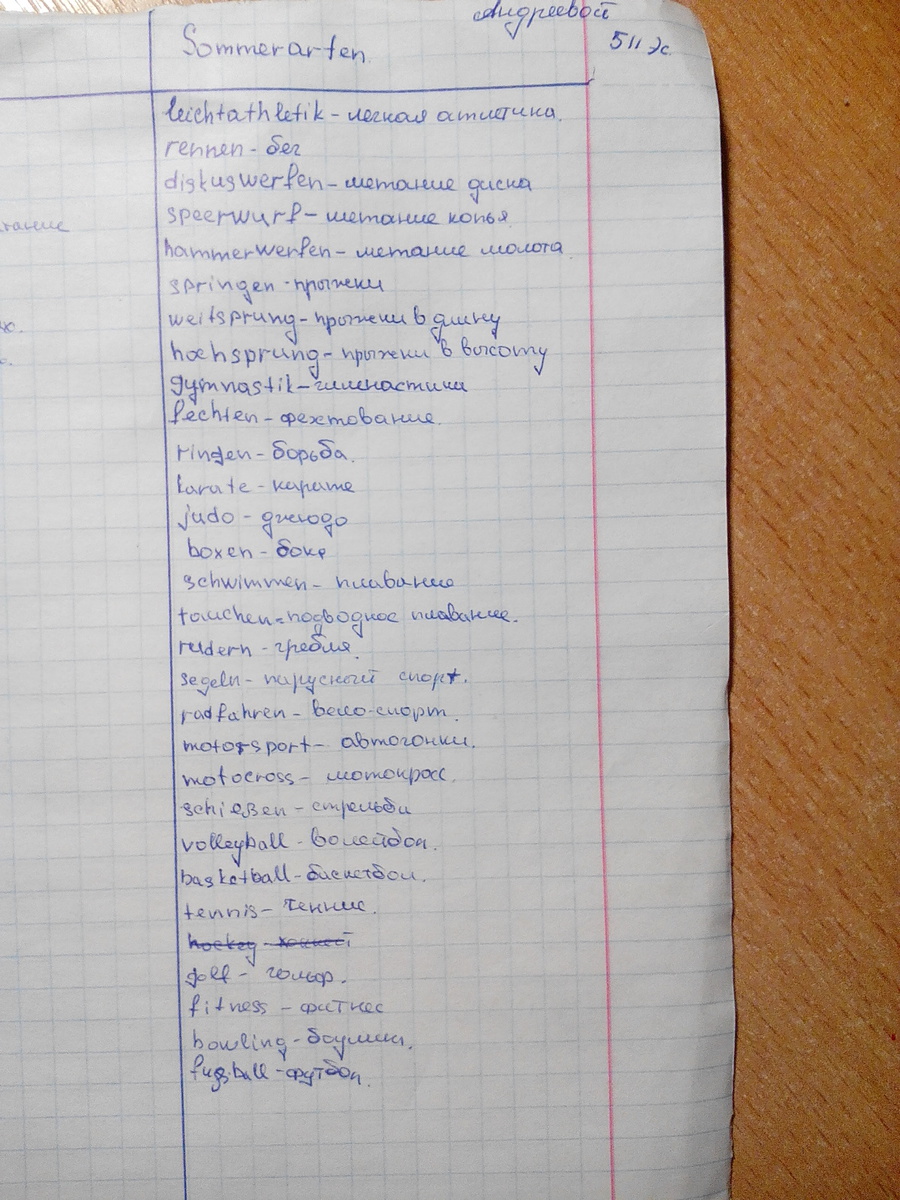 Андреевой
511 эс
Sommerarten
leichtathletik - легкая атлетика.
rennen - бег
diskuswerfen - метание диска
speerwurf - метание копья
hammerwerfen - метание молота
springen - прыжки
weitsprung - прыжки в длину
hochsprung - прыжки в высоту
gymnastik - гимнастика
fechten - фехтование.
ringen - борьба.
karate - карате
judo - дзюдо
boxen - бокс
schwimmen - плавание
tauchen - подводное плавание.
rudern - гребля.
segeln - парусный спорт.
radfahren - вело-спорт.
motorsport - автогонки.
motocross - мотокросс.
schießen - стрельба
volleyball - волейбол.
basketball - баскетбол.
tennis - теннис.
hockey - хоккей
golf - гольф.
fitness - фитнес
bowling - боулинг.
fussball - футбол.
тание
ю.